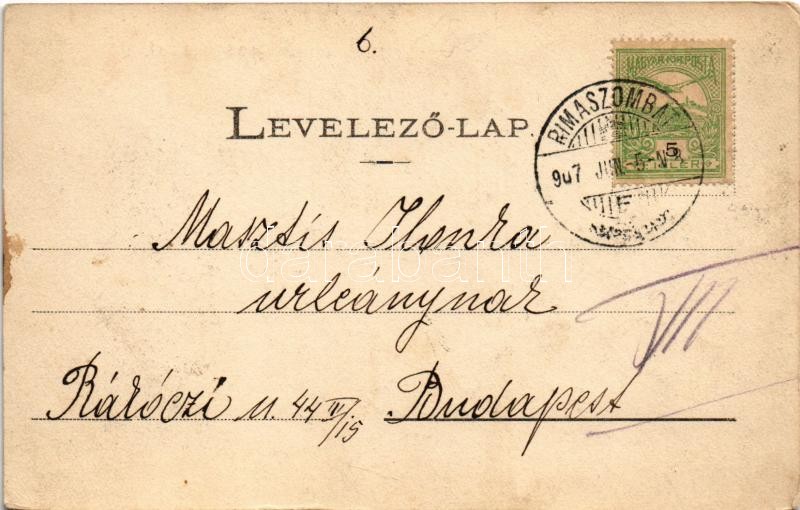 6.
MAGYAR KIR. POSTA
5
FILLÉR
RIMASZOMBAT
907 JUN. -5. N
LEVELEZŐ-LAP.
Masztis Ilonka
urleánynak
VII
Rákóczi u. 44 II/15 Budapest
darabanth